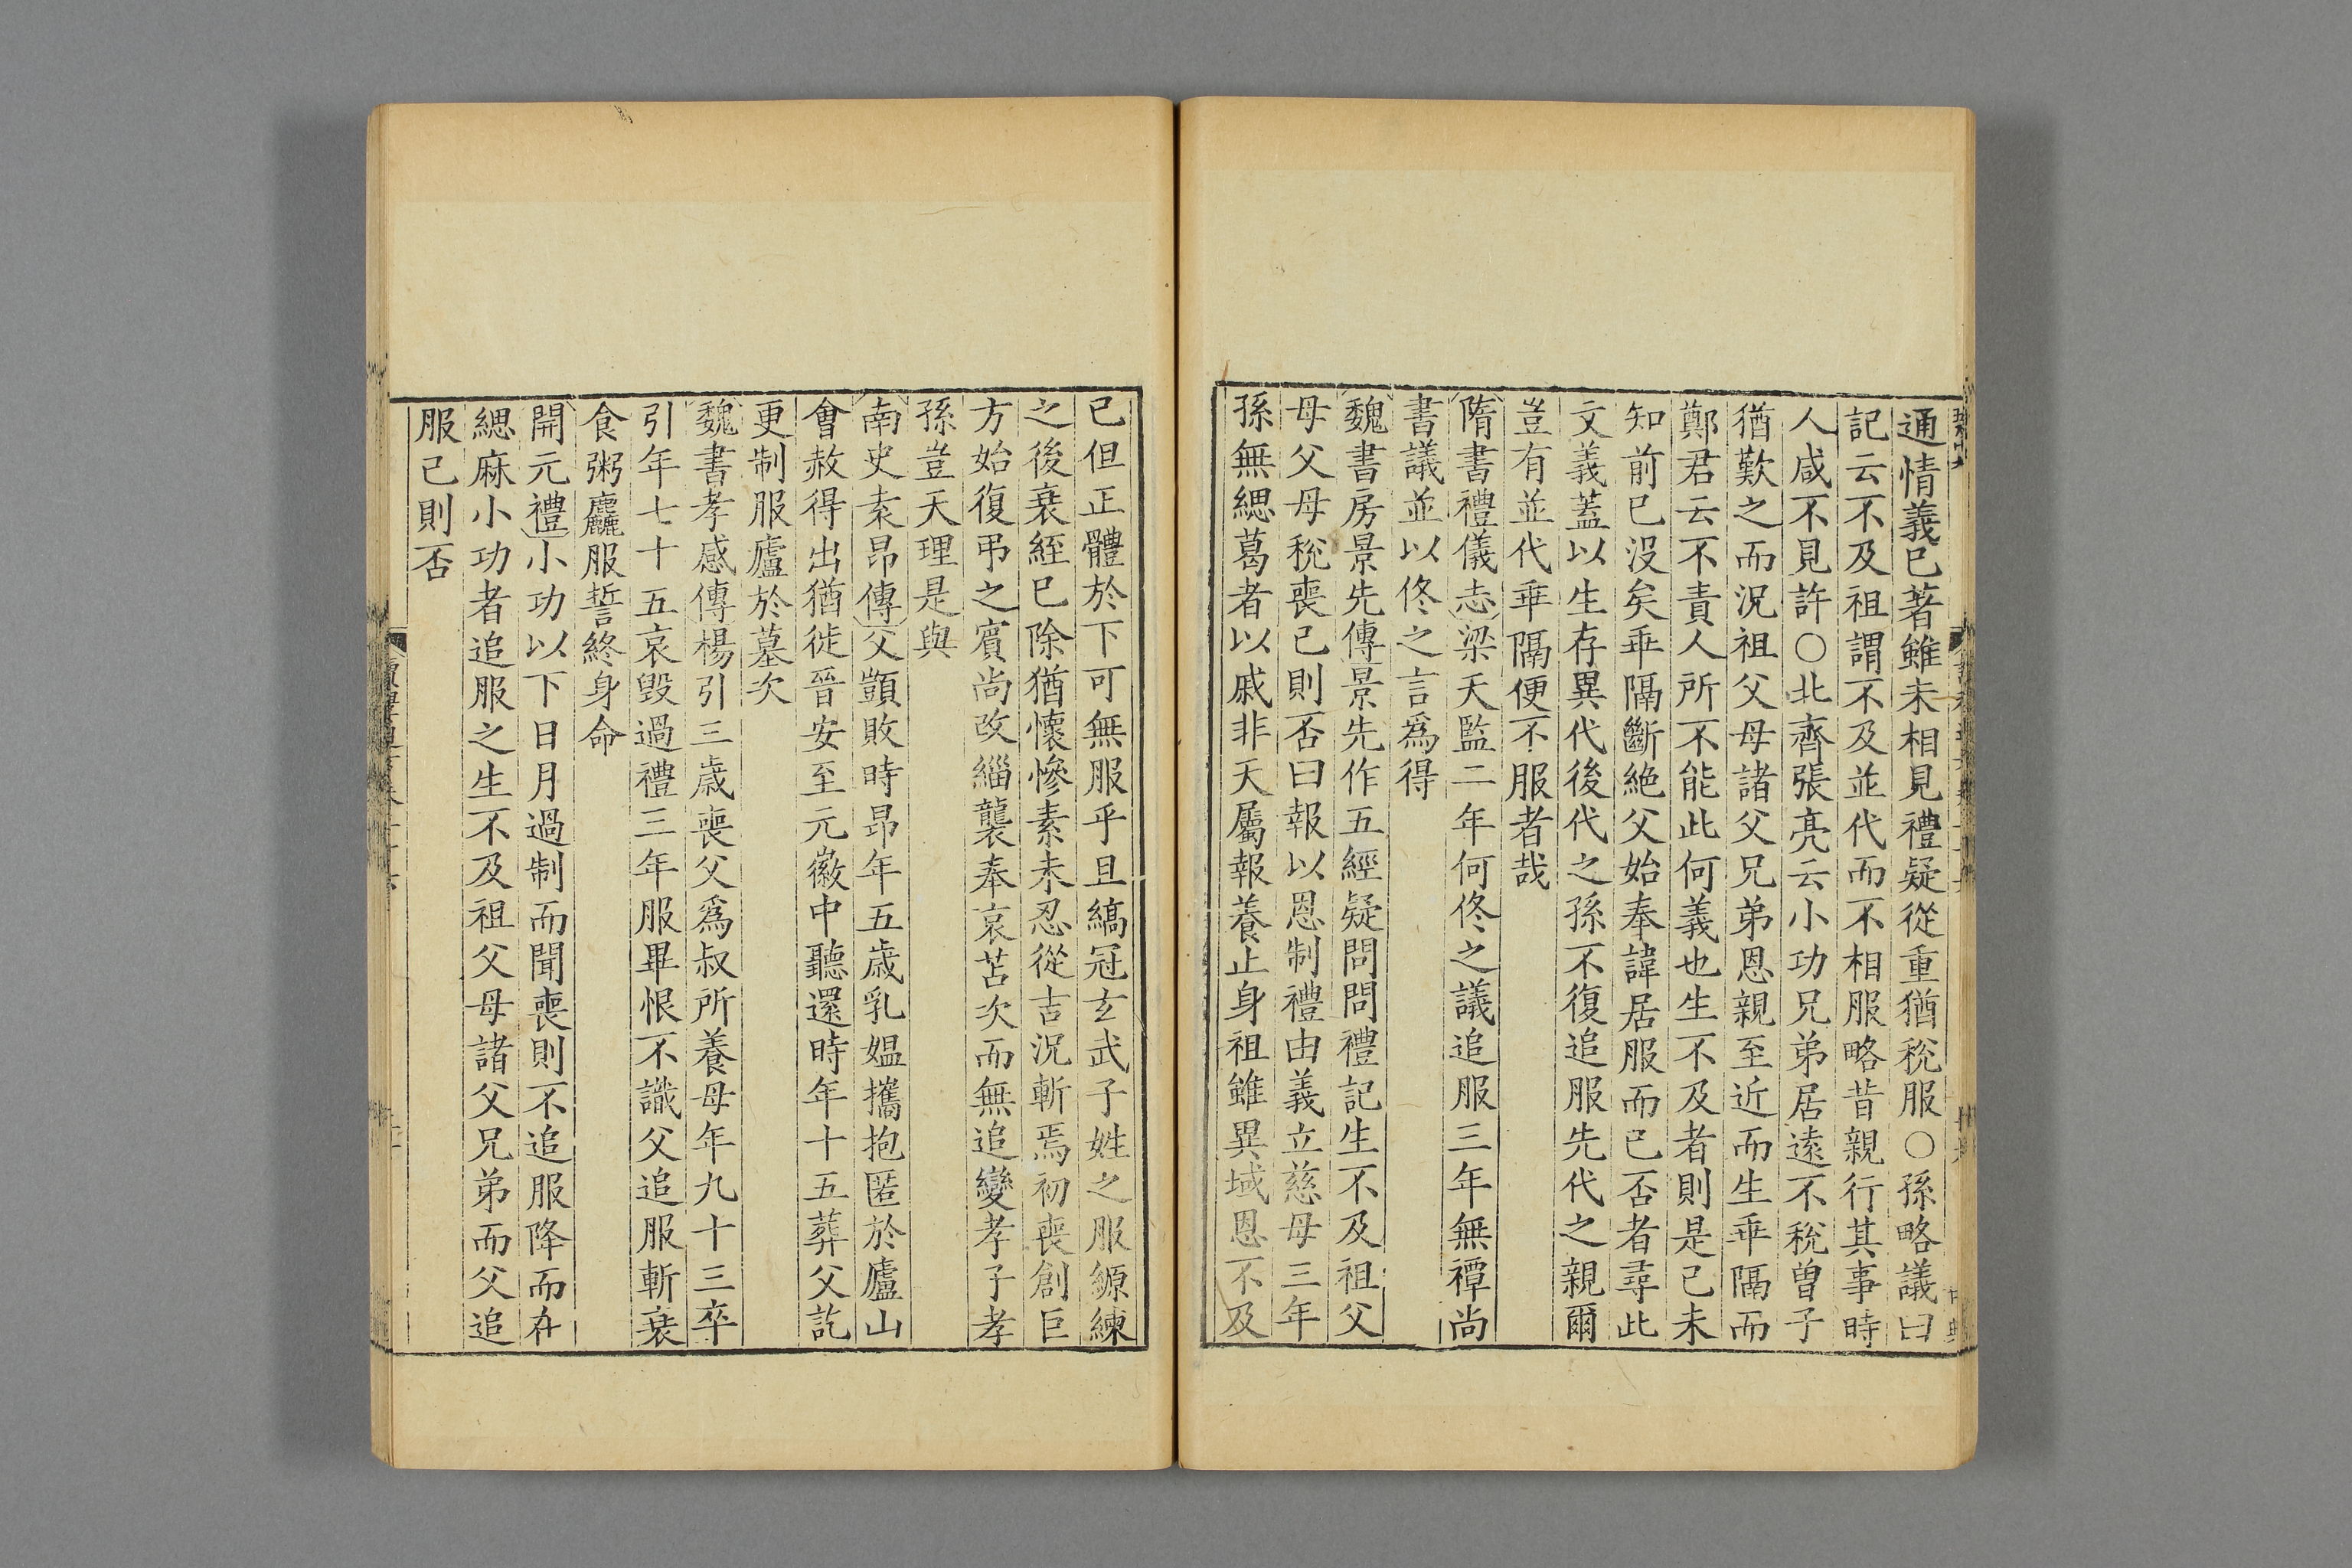 通情義已著雖未相見禮疑從重猶稅服○孫略議曰
記云不及祖謂不及並代而不相服略昔親行其事時
人咸不見許○北齊張亮云小功兄弟居遠不稅曾子
猶歎之而況祖父母諸父兄弟恩親至近而生乖隔而
鄭君云不責人所不能此何義也生不及者則是已未
知前已沒矣乖隔斷絶父始奉諱居服而已否者尋此
文義蓋以生存異代後代之孫不復追服先代之親爾
豈有並代乖隔便不服者哉
隋書禮儀志梁天監二年何佟之議追服三年無禫尚
書議並以佟之言爲得
魏書房景先傳景先作五經疑問問禮記生不及祖父
母父母稅喪己則否曰報以恩制禮由義立慈母三年
孫無緦葛者以戚非天屬報養止身祖雖異域恩不及
已但正體於下可無服乎且縞冠玄武子姓之服縓練
之後衰絰已除猶懷慘素未忍從吉況斬焉初喪創巨
方始復弔之賓尚改緇襲奉哀苫次而無追變孝子孝
孫豈天理是與
南史袁昂傳父顗敗時昂年五歳乳媼攜抱匿於廬山
會赦得出猶徙晉安至元徽中聽還時年十五葬父訖
更制服廬於墓次
魏書孝感傳楊引三歳喪父爲叔所養母年九十三卒
引年七十五哀毀過禮三年服畢恨不識父追服斬衰
食粥麤服誓終身命
開元禮小功以下日月過制而聞喪則不追服降而在
緦麻小功者追服之生不及祖父母諸父兄弟而父追
服己則否